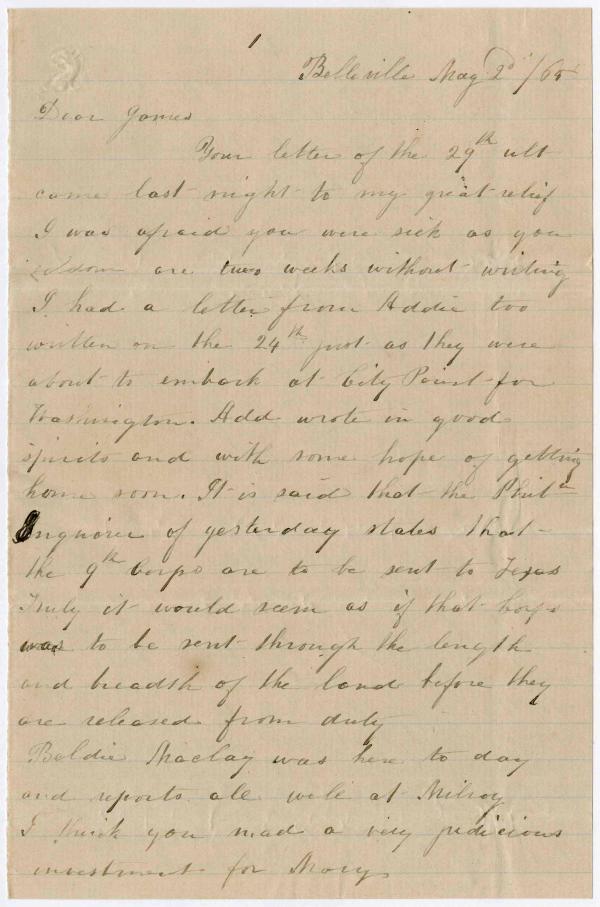 1
Belleville May 2d /65
Dear James
Your letter of the 29th ult
came last night to my great relief
I was afraid you were sick as you
seldom are two weeks without writing
I had a letter from Addie too
written on the 24th just as they were
about to embark at City Point for
Washington. Add wrote in good
spirits and with some hope of getting
home soon. It is said that the Phila
Enquirer of yesterday states that
the 9th Corps are to be sent to Texas
Truly it would seem as if that Corps
was to be sent through the length
and breadth of the land before they
are released from duty
Baldie Maclay was here to day
and reports all well at Milroy
I think you mad a very judicious
investment for Mary